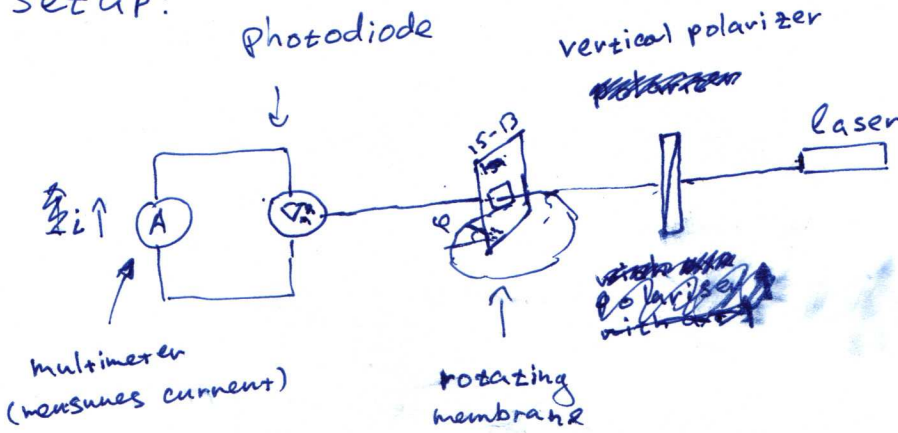 setup:
photodiode
vertical polarizer
laser
15-13
i↑
A
φ
multimeter
(measures current)
rotating
membrane